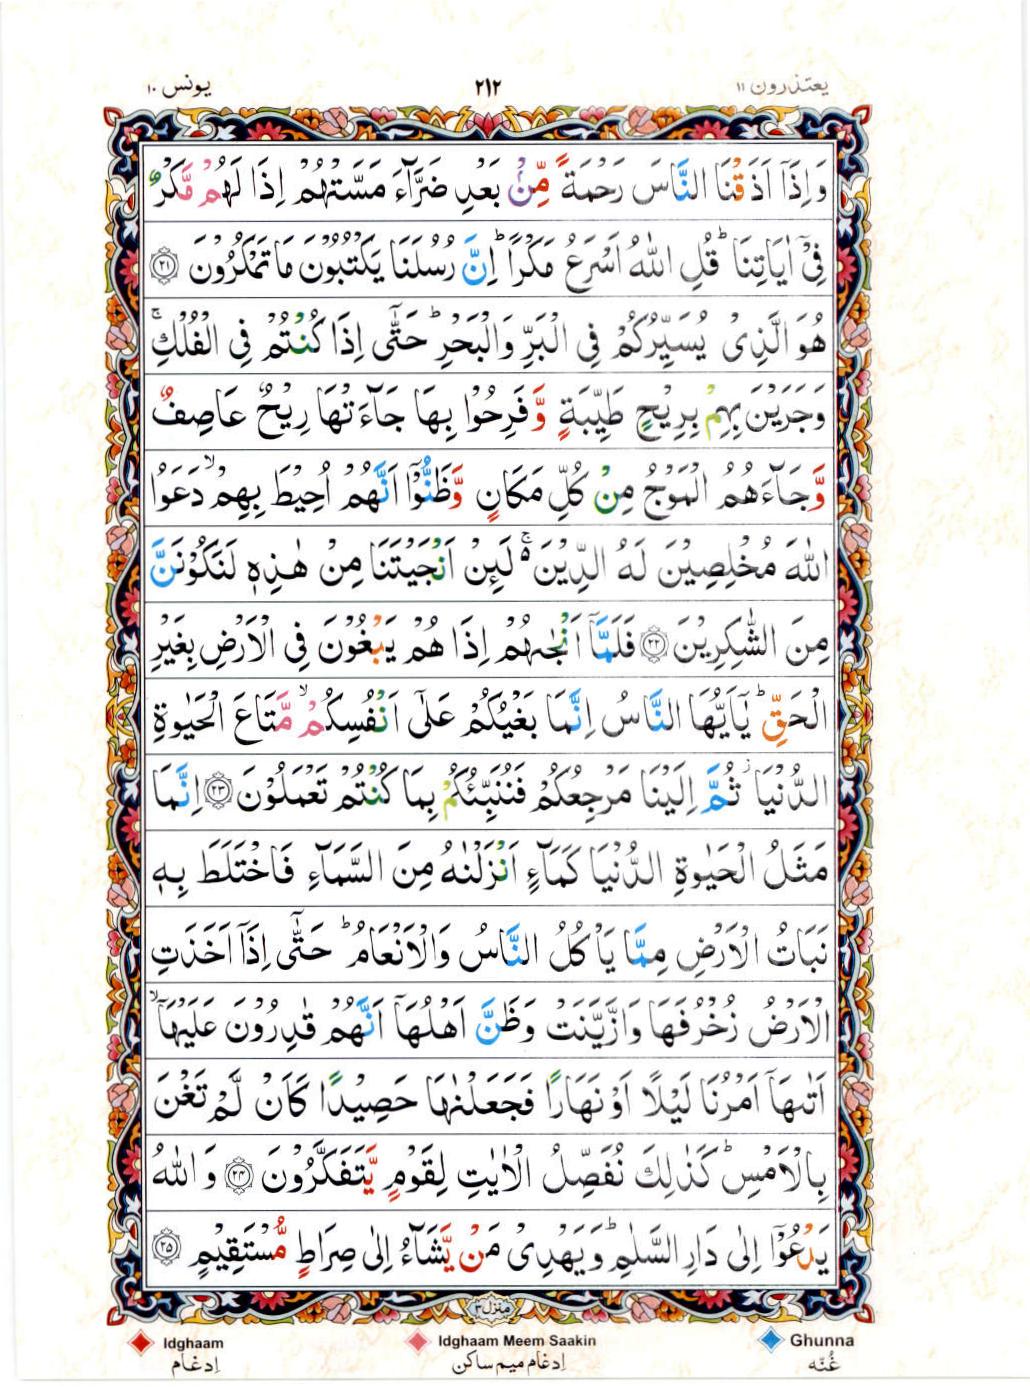 يعتذرون ١١ ٢١٢ يونس ١٠
وَاِذَاۤ اَذَقۡنَا النَّاسَ رَحۡمَةً مِّنۡۢ بَعۡدِ ضَرَّآءَ مَسَّتۡهُمۡ اِذَا لَهُمۡ مَّكۡرٌ
فِىۡۤ اٰيَاتِنَا ؕ قُلِ اللّٰهُ اَسۡرَعُ مَكۡرًا ؕ اِنَّ رُسُلَنَا يَكۡتُبُوۡنَ مَا تَمۡكُرُوۡنَ ﴿۲۱﴾
هُوَ الَّذِىۡ يُسَيِّرُكُمۡ فِى الۡبَرِّ وَالۡبَحۡرِ ؕ حَتّٰۤى اِذَا كُنۡتُمۡ فِى الۡفُلۡكِ ۚ
وَجَرَيۡنَ بِهِمۡ بِرِيۡحٍ طَيِّبَةٍ وَّفَرِحُوۡا بِهَا جَآءَتۡهَا رِيۡحٌ عَاصِفٌ
وَّجَآءَهُمُ الۡمَوۡجُ مِنۡ كُلِّ مَكَانٍ وَّظَنُّوۡۤا اَنَّهُمۡ اُحِيۡطَ بِهِمۡ ۙ دَعَوُا
اللّٰهَ مُخۡلِصِيۡنَ لَهُ الدِّيۡنَ ۚ لَئِنۡ اَنۡجَيۡتَنَا مِنۡ هٰذِهٖ لَنَكُوۡنَنَّ
مِنَ الشّٰكِرِيۡنَ ﴿۲۲﴾ فَلَمَّاۤ اَنۡجٰٮهُمۡ اِذَا هُمۡ يَبۡغُوۡنَ فِى الۡاَرۡضِ بِغَيۡرِ
الۡحَقِّ ؕ يٰۤاَيُّهَا النَّاسُ اِنَّمَا بَغۡيُكُمۡ عَلٰٓى اَنۡفُسِكُمۡ ۙ مَّتَاعَ الۡحَيٰوةِ
الدُّنۡيَا ؗ ثُمَّ اِلَيۡنَا مَرۡجِعُكُمۡ فَنُنَبِّئُكُمۡ بِمَا كُنۡتُمۡ تَعۡمَلُوۡنَ ﴿۲۳﴾ اِنَّمَا
مَثَلُ الۡحَيٰوةِ الدُّنۡيَا كَمَآءٍ اَنۡزَلۡنٰهُ مِنَ السَّمَآءِ فَاخۡتَلَطَ بِهٖ
نَبَاتُ الۡاَرۡضِ مِمَّا يَاۡكُلُ النَّاسُ وَالۡاَنۡعَامُ ؕ حَتّٰۤى اِذَاۤ اَخَذَتِ
الۡاَرۡضُ زُخۡرُفَهَا وَازَّيَّنَتۡ وَظَنَّ اَهۡلُهَاۤ اَنَّهُمۡ قٰدِرُوۡنَ عَلَيۡهَاۤ ۙ
اَتٰٮهَاۤ اَمۡرُنَا لَيۡلًا اَوۡ نَهَارًا فَجَعَلۡنٰهَا حَصِيۡدًا كَاَنۡ لَّمۡ تَغۡنَ
بِالۡاَمۡسِ ؕ كَذٰلِكَ نُفَصِّلُ الۡاٰيٰتِ لِقَوۡمٍ يَّتَفَكَّرُوۡنَ ﴿۲۴﴾ وَاللّٰهُ
يَدۡعُوۡۤا اِلٰى دَارِ السَّلٰمِ ؕ وَيَهۡدِىۡ مَنۡ يَّشَآءُ اِلٰى صِرَاطٍ مُّسۡتَقِيۡمٍ ﴿۲۵﴾
منزل ٣
Idghaam Idghaam Meem Saakin Ghunna
إدغام إدغام ميم ساكن غُنّه